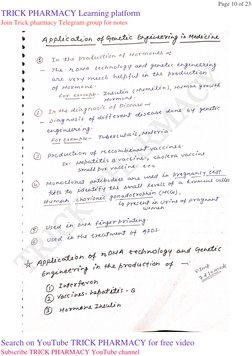 Page 10 of 23
TRICK PHARMACY Learning platform
Join Trick pharmacy Telegram group for notes
Application of Genetic Engineering in Medicine
① In the production of Hormones
- The rDNA technology and genetic engineering
are very much helpful in the production
of Hormone.
For example- Insulin (Humulin), Human growth
Hormone
② In the diagnosis of Disease
- Diagnosis of different disease done by genetic
engineering.
For Example- Tuberculosis, Malaria
③ Production of recombinant vaccines
Ex- Hepatitis B vaccines, cholera vaccine
Small pox vaccine etc.
④ Monoclonal antibodies are used in Pregnancy test
kits to identify the small levels of a hormone called
Human Chorionic gonadotrophin (HCG).
↳ present in urine of pregnant
woman
⑤ Used in DNA fingerprinting
⑥ Used in the treatment of AIDS.
* Application of rDNA technology and Genetic
Engineering in the production of
① Interferon
② Vaccines- hepatitis-B
③ Hormone Insulin
TRICK PHARMACY
Search on YouTube TRICK PHARMACY for free video
Subscribe TRICK PHARMACY YouTube channel